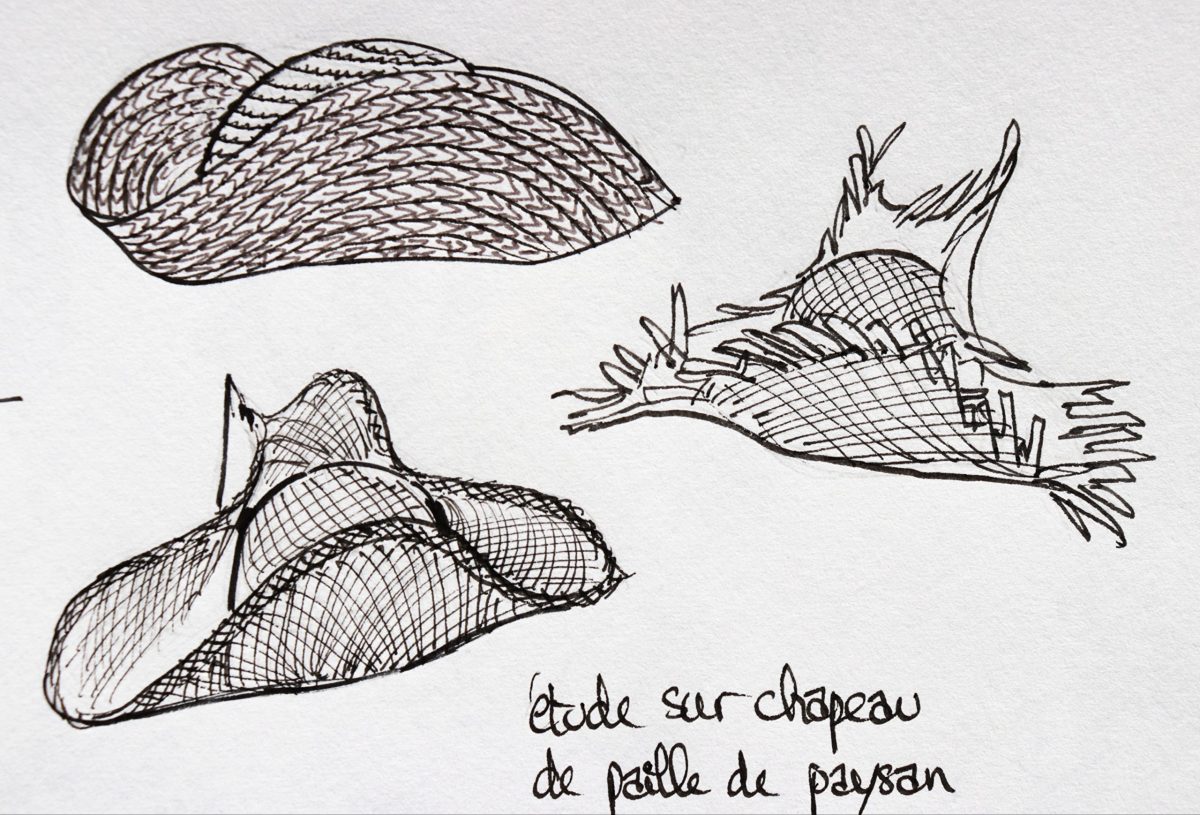 étude sur chapeau
de paille de paysan